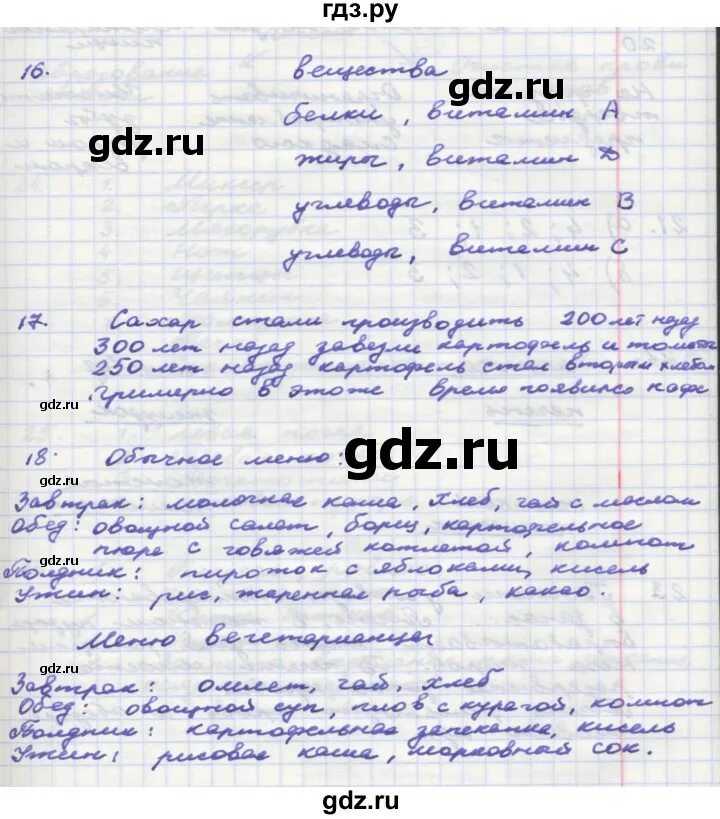 гдз.ру
16. вещества
gdz.ru
белки, витамин А
gdz.ru
жиры, витамин D
углеводы, витамин В
углеводы, витамин С
17. Сахар стали производить 200 лет назад
300 лет назад завезли картофель и томаты
250 лет назад картофель стал вторым хлебом
gdz.ru
Примерно в этоже время появился кофе
gdz.ru
18. Обычное меню:
Завтрак: молочная каша, хлеб, чай с маслом
Обед: овощной салат, борщ, картофельное
пюре с говяжей котлетой, компот
gdz.ru
Полдник: пирожок с яблоками, кисель
Ужин: рис, жаренная рыба, какао.
Меню вегетарианцы
gdz.ru
Завтрак: омлет, чай, хлеб
Обед: овощной суп, плов с курагой, компот
Полдник: картофельная запеканка, кисель
Ужин: рисовая каша, морковный сок.
gdz.ru
gdz.ru